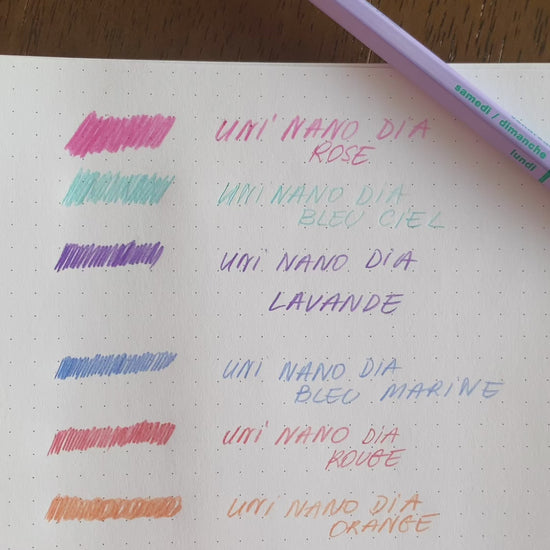 samedi / dimanche
lundi
UNI NANO DIA
ROSE
UNI NANO DIA
BLEU CIEL
UNI NANO DIA
LAVANDE
UNI NANO DIA
BLEU MARINE
UNI NANO DIA
ROUGE
UNI NANO DIA
ORANGE